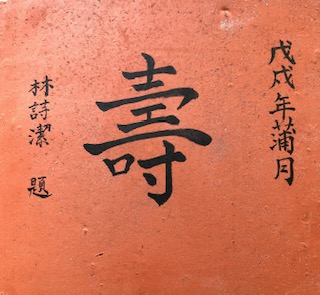 戊戌年蒲月
壽
林詩潔 題